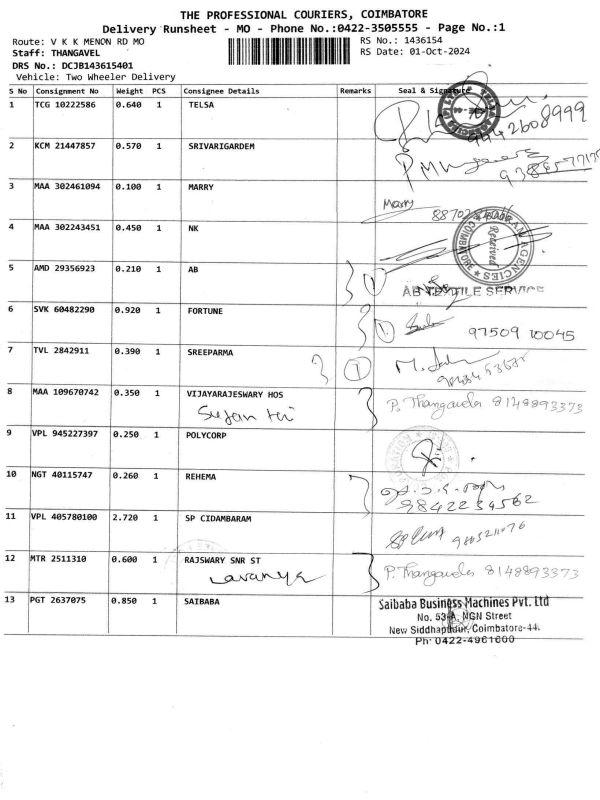 THE PROFESSIONAL COURIERS, COIMBATORE
Delivery Runsheet - MO - Phone No.:0422-3505555 - Page No.:1
Route: V K K MENON RD MO
RS No.: 1436154
Staff: THANGAVEL
RS Date: 01-Oct-2024
DRS No.: DCJB143615401
Vehicle: Two Wheeler Delivery
S No Consignment No Weight PCS Consignee Details Remarks Seal & Signature
1 TCG 10222586 0.640 1 TELSA
9942608999
2 KCM 21447857 0.570 1 SRIVARIGARDEM
3 MAA 302461094 0.100 1 MARRY
Marry
4 MAA 302243451 0.450 1 NK
AGENCIES COIMBATORE
Received
5 AMD 29356923 0.210 1 AB
1
AB TEXTILE SERVICE
6 SVK 60482290 0.920 1 FORTUNE
1
97509 10045
7 TVL 2842911 0.390 1 SREEPARMA
1
8 MAA 109670742 0.350 1 VIJAYARAJESWARY HOS
P. Thangavelu 8148893373
9 VPL 945227397 0.250 1 POLYCORP
10 NGT 40115747 0.260 1 REHEMA
9842234562
11 VPL 405780100 2.720 1 SP CIDAMBARAM
12 MTR 2511310 0.600 1 RAJSWARY SNR ST
Lavanya
P. Thangavelu 8148893373
13 PGT 2637075 0.850 1 SAIBABA
Saibaba Business Machines Pvt. Ltd
No. 53-A, NGN Street
New Siddhapudur, Coimbatore-44.
Ph: 0422-4961600